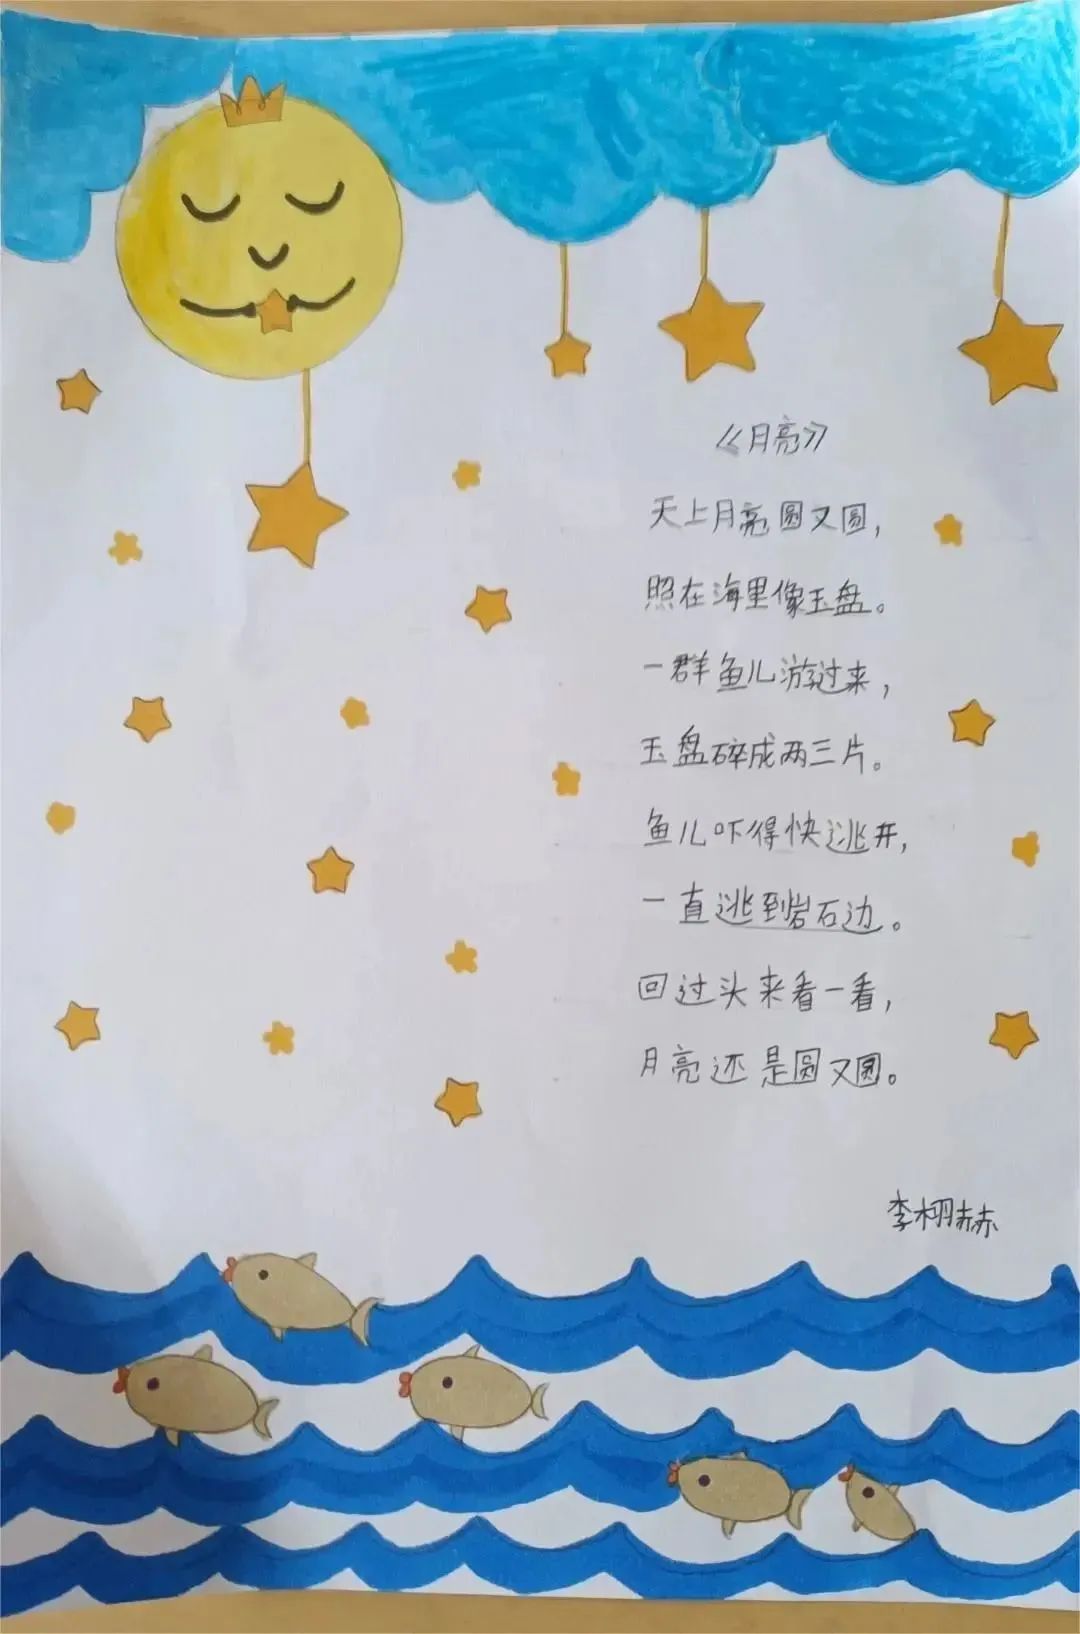 《月亮》
天上月亮圆又圆，
照在海里像玉盘。
一群鱼儿游过来，
玉盘碎成两三片。
鱼儿吓得快逃开，
一直逃到岩石边。
回过头来看一看，
月亮还是圆又圆。
李栩赫